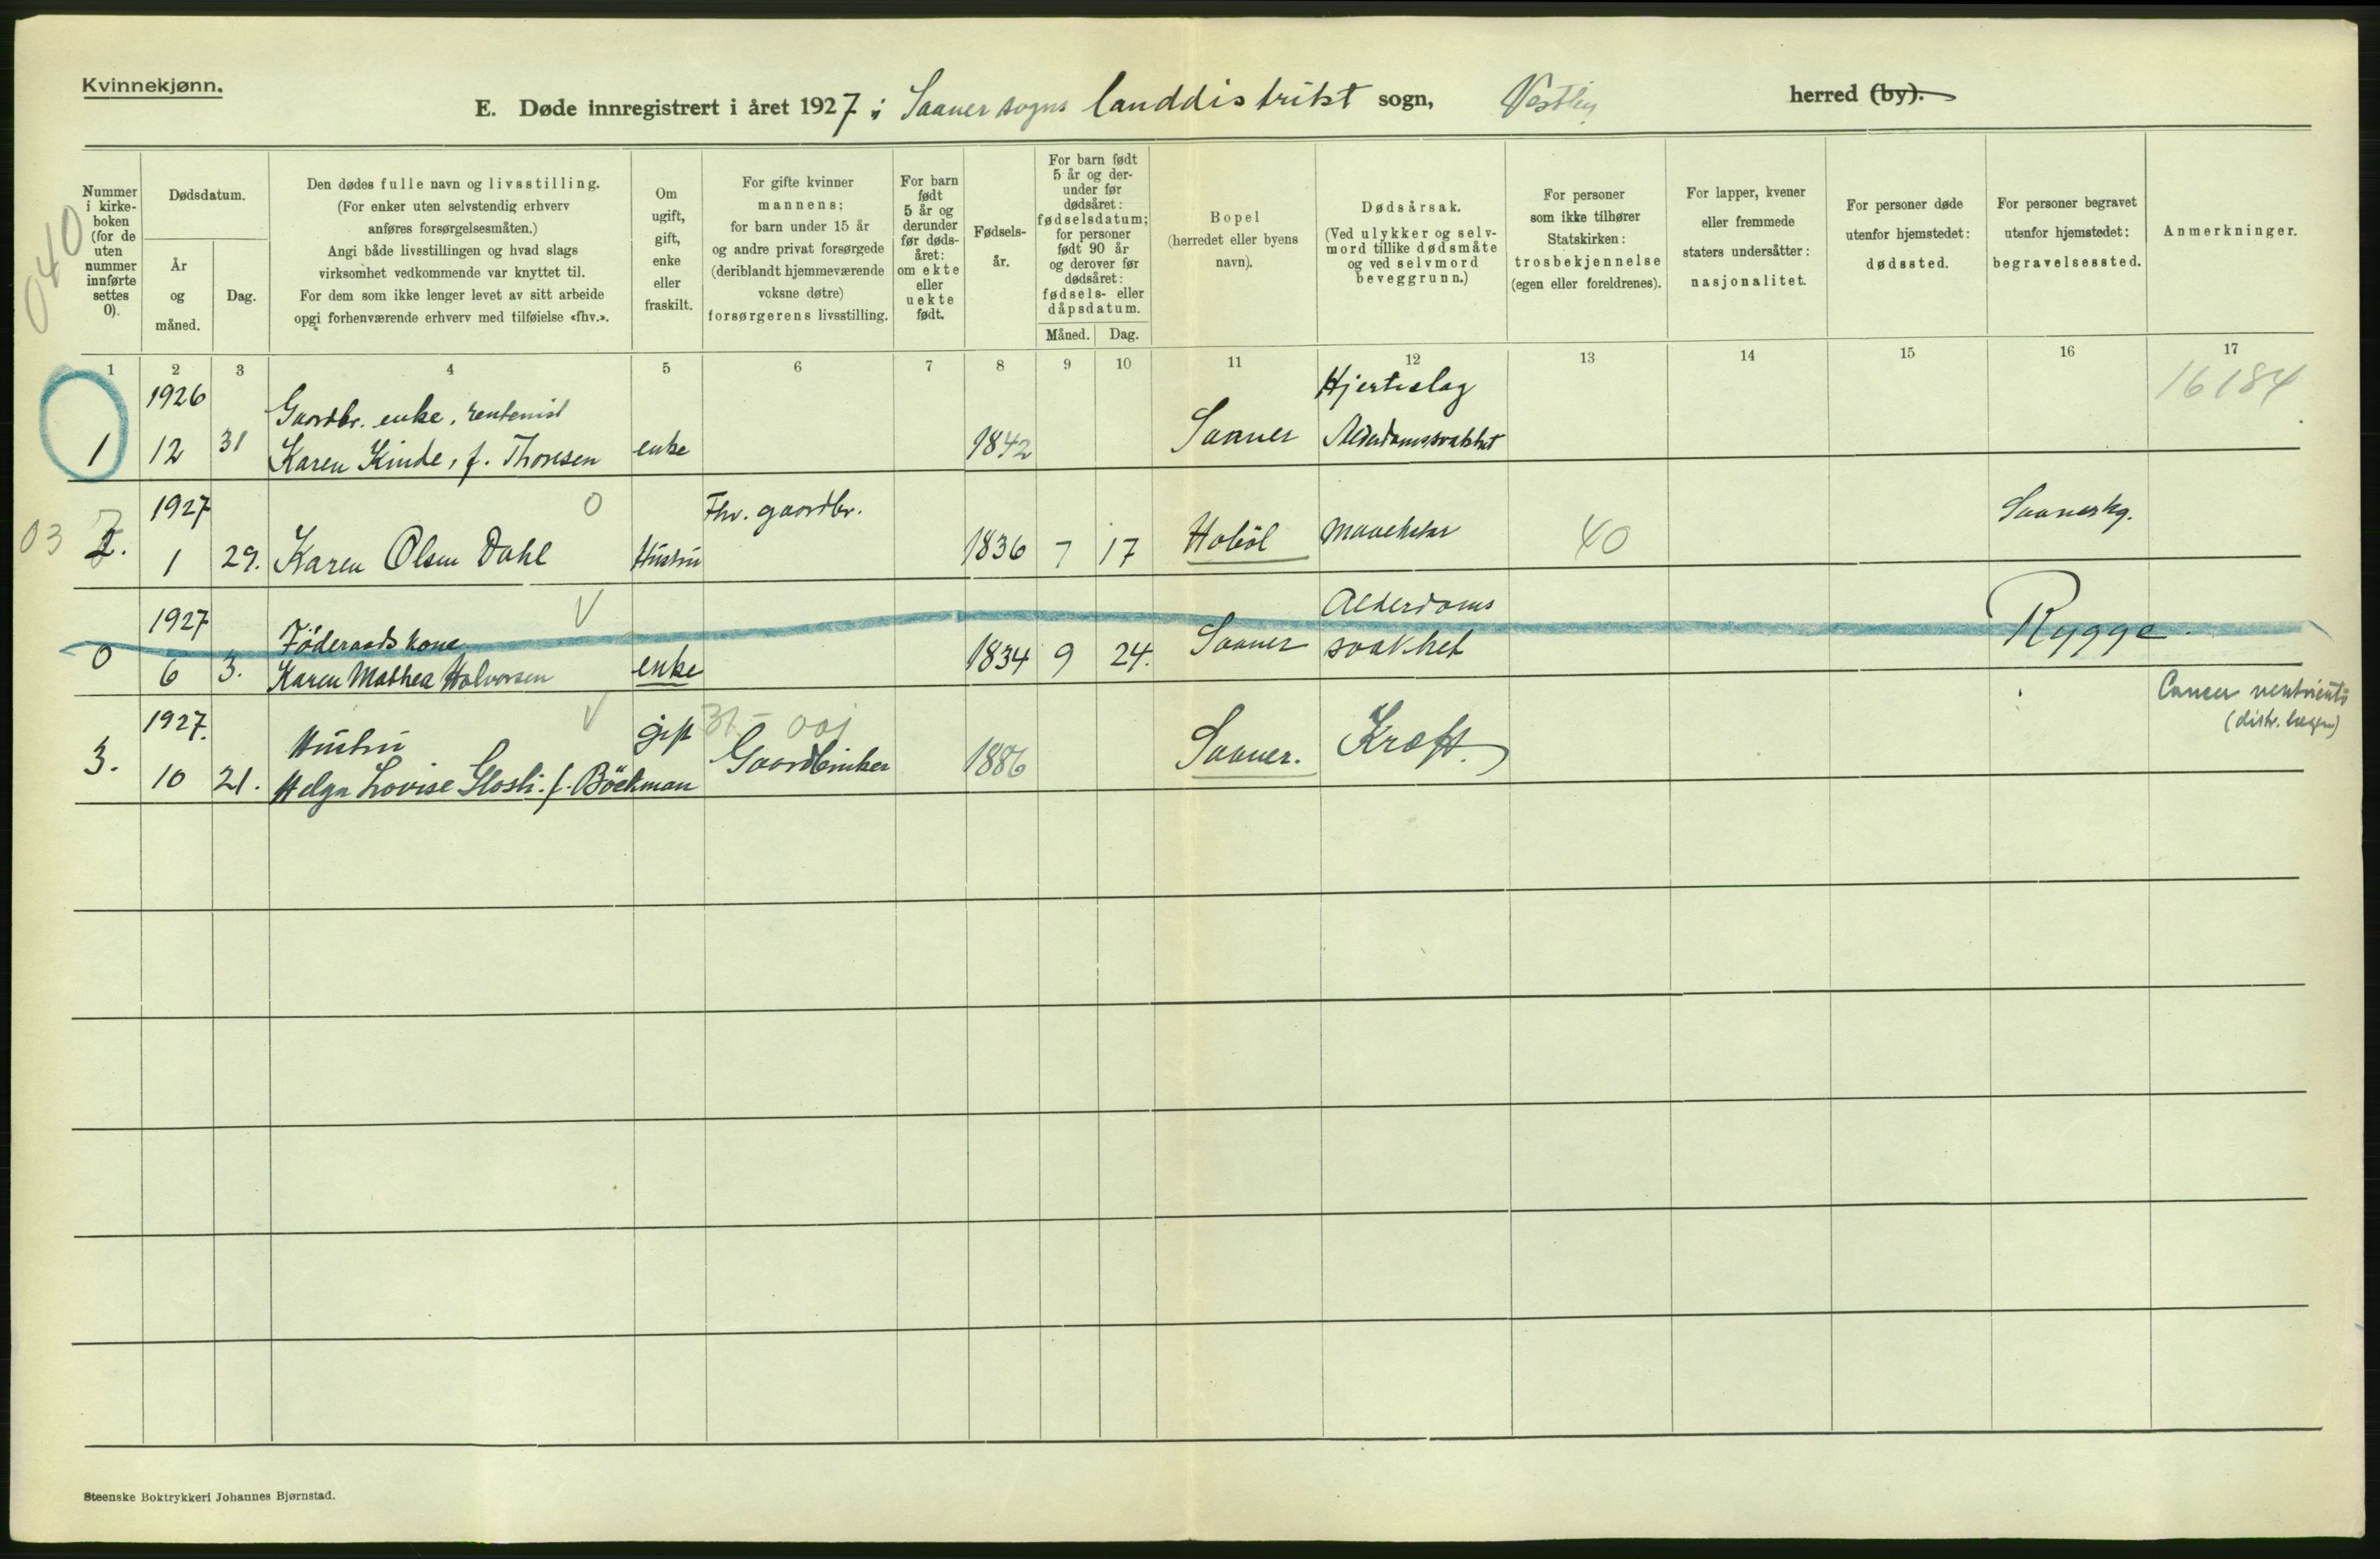 Kvinnekjønn.
E. Døde innregistrert i året 1927 i Saaner sogns landdistrikt sogn, Vestby herred (by).
040
Nummer i kirke-boken (for de uten nummer innførte settes 0).
Dødsdatum.
År og måned.
Dag.
Den dødes fulle navn og livsstilling.
(For enker uten selvstendig erhverv
anføres forsørgelsesmåten.)
Angi både livsstillingen og hvad slags
virksomhet vedkommende var knyttet til.
For dem som ikke lenger levet av sitt arbeide
opgi forhenværende erhverv med tilføielse «fhv.».
Om ugift, gift, enke eller fraskilt.
For gifte kvinner
mannens;
for barn under 15 år
og andre privat forsørgede
(deriblandt hjemmeværende
voksne døtre)
forsørgerens livsstilling.
For barn født 5 år og derunder før døds-året: om ekte eller uekte født.
Fødsels-år.
For barn født 5 år og der-under før dødsåret: fødselsdatum; for personer født 90 år og derover før dødsåret: fødsels- eller dåpsdatum.
Måned. Dag.
Bopel
(herredet eller byens
navn).
Dødsårsak.
(Ved ulykker og selv-
mord tillike dødsmåte
og ved selvmord
beveggrunn.)
For personer
som ikke tilhører
Statskirken:
trosbekjennelse
(egen eller foreldrenes).
For lapper, kvener
eller fremmede
staters undersåtter:
nasjonalitet.
For personer døde
utenfor hjemstedet:
dødssted.
For personer begravet
utenfor hjemstedet:
begravelsessted.
Anmerkninger.
1 2 3 4 5 6 7 8 9 10 11 12 13 14 15 16 17
1926 Gaardbr. enke, rentenist Hjerteslag 16184
1 12 31 Karen Kinde, f. Thoresen enke 1842 Saaner Alderdomssvakhet
1927 0 Fhv. gaardbr. Saanerkg.
03 2. 1 29. Karen Olsen Dahl Hustru 1836 7 17 Hobøl 40
1927 V Alderdoms
Føderaadskone Rygge.
0 6 3. Karen Mathea Halvorsen enke 1834 9 24. Saaner svakhet
1927. Hustru V gift Cancer
(distr. lægen)
3. 10 21. Helga Lovise Slosti. f. Böckman Gaardbruker 1886 Saaner. Kræft.
Steenske Boktrykkeri Johannes Bjørnstad.